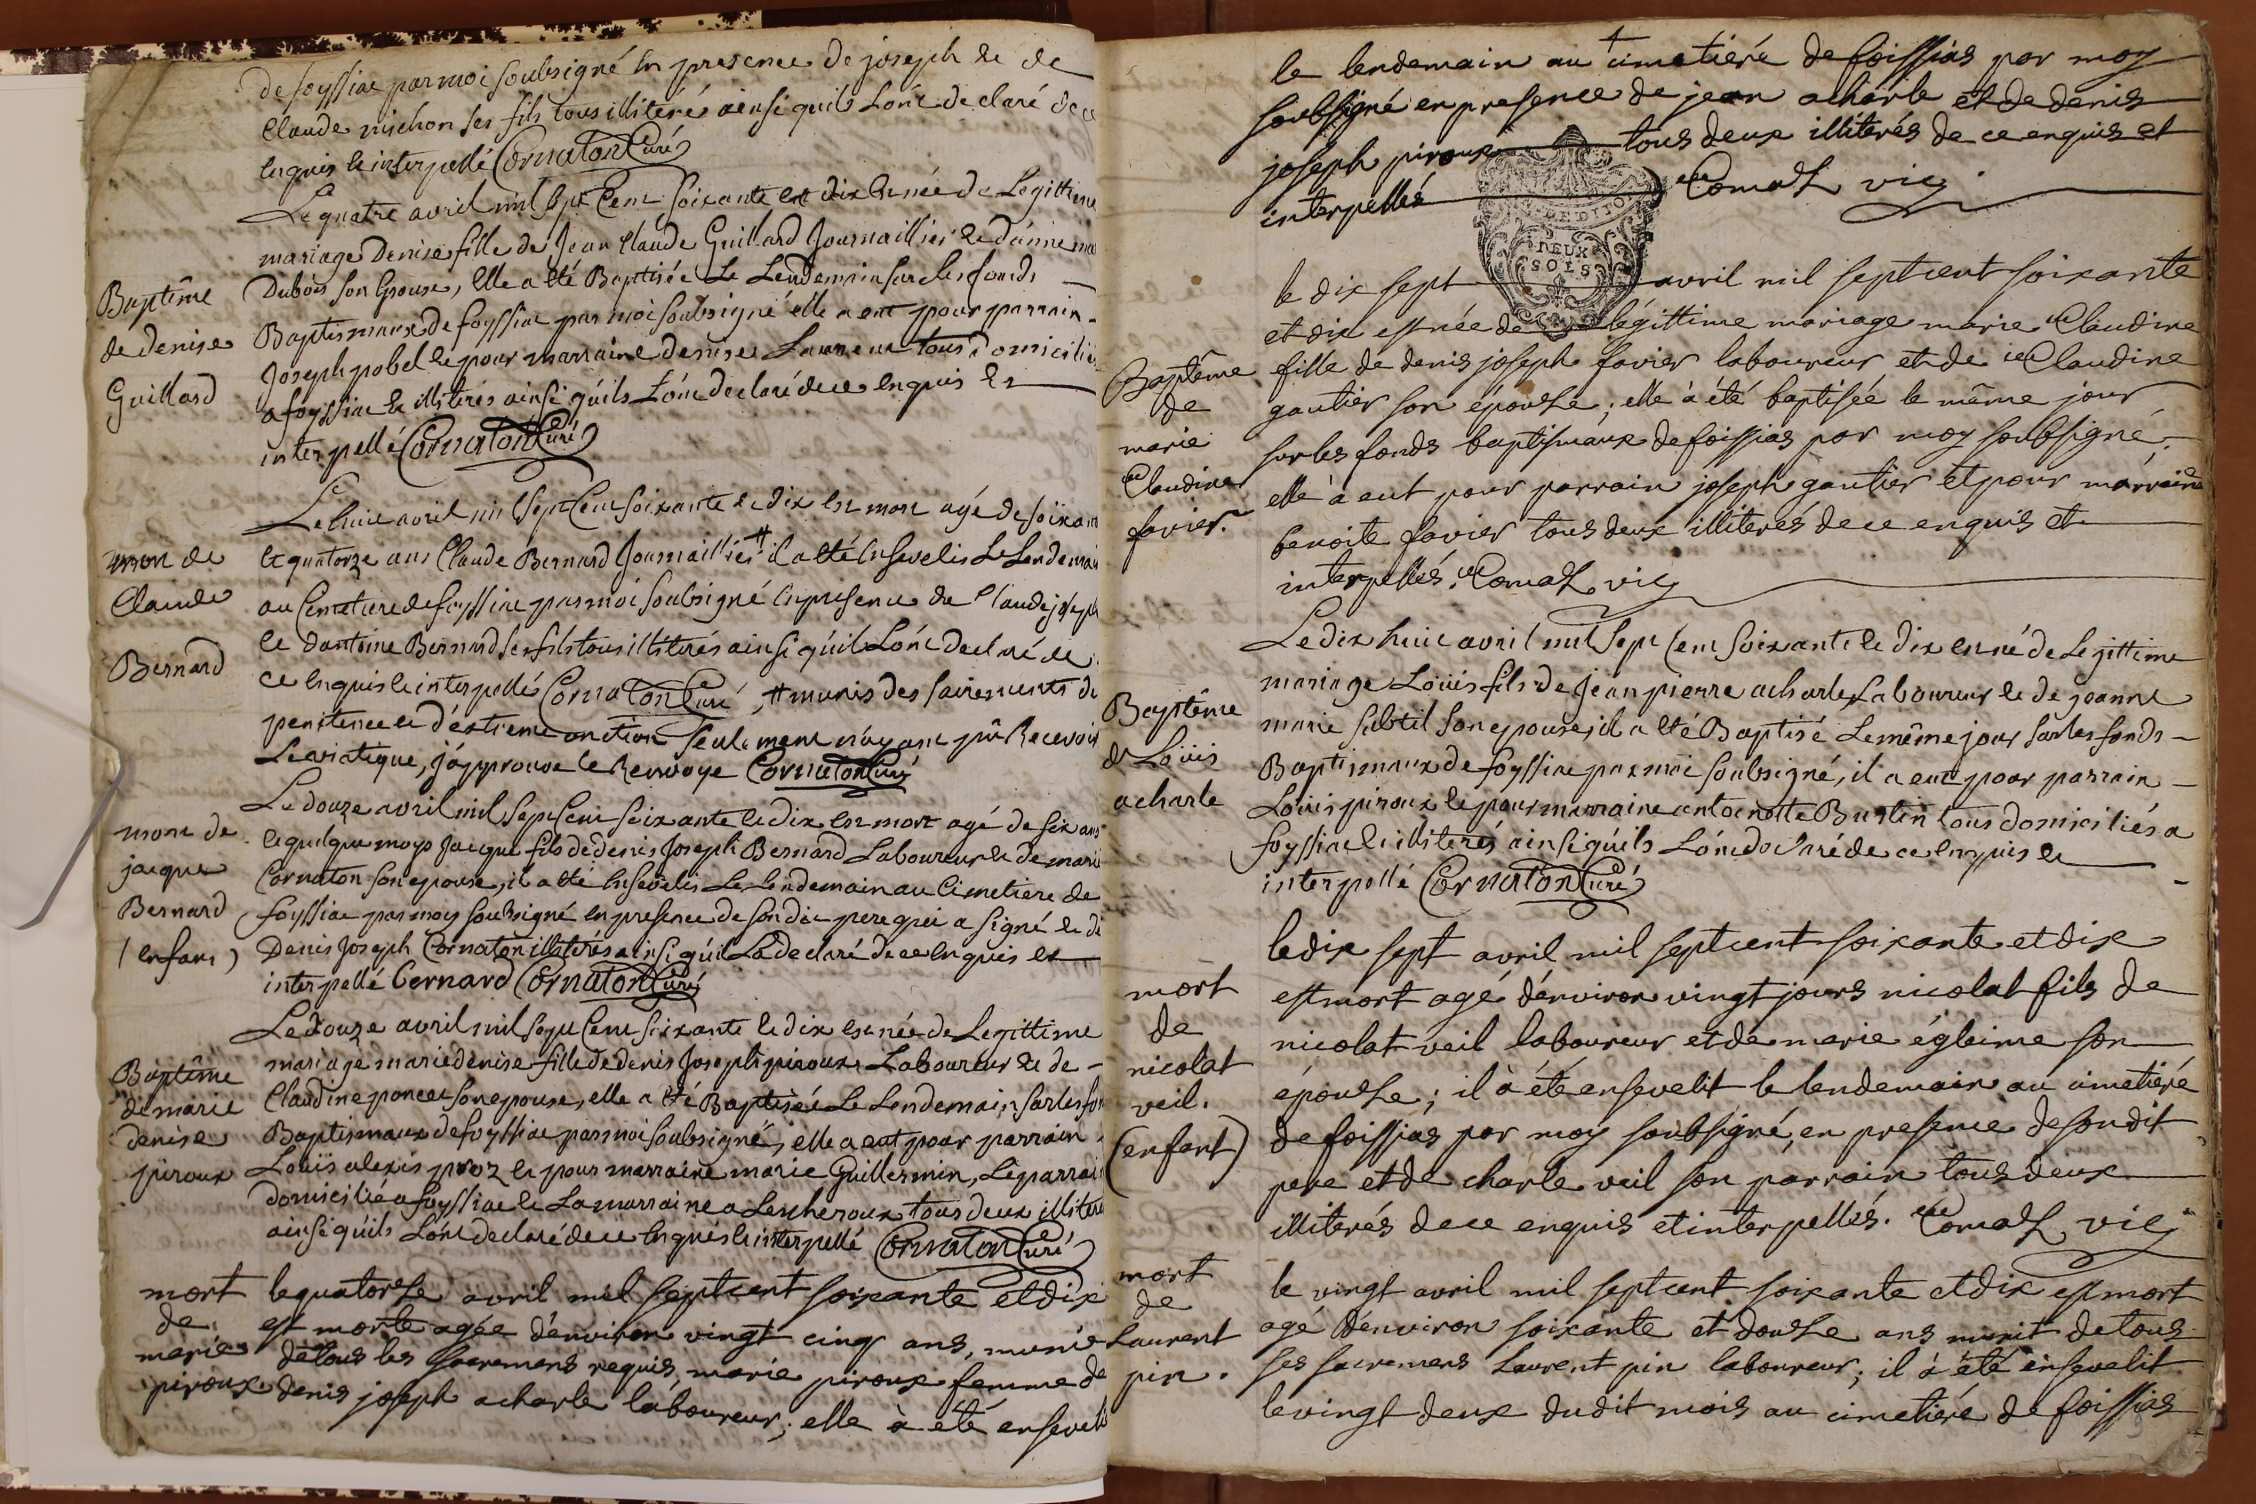 de foyssiac par moi soubsigné en presence de joseph et de
Claude michon ses fils tous illiterés ainsi quils l'ont declaré de ce
enquis et interpellé Cornaton Curé
Le quatre avril mil sept Cent soixante et dix est née de Legittime
mariage Denise fille de Jean Claude Guillard Journaillier et d'anne ma
Dubois son Epouse, elle a été Baptisée Le Lendemain sur les fonds
Baptismaux de foyssiac par moi soubsigné elle a eut pour parrain
Joseph pobel et pour marraine denise Laurent tous domiciliés
a foyssiac et illiterés ainsi qu'ils L'ont declaré de ce enquis et
interpellé Cornaton Curé
Baptême
de denise
Guillard
Le huit avril mil sept Cent soixante et dix est mort agé de soixan
et quatorze ans Claude Bernard Journaillier # il a été Ensevelis Le Lendemain
au Cemetiere de foyssiac par moi soubsigné en presence de Claude joseph
et d'antoine Bernard ses fils tous illiterés ainsi qu'il L'ont declaré de
ce enquis et interpellé Cornaton Curé, # munis des sairements de
penitence et d'extreme onction seulement n'ayant pû Recevoir
Le viatique, j'approuve le Renvoye Cornaton Curé
mort de
Claude
Bernard
Le douze avril mil sept Cent soixante et dix est mort agé de six ans
et quelque moys Jacque fils de denis Joseph Bernard Laboureur et de marie
Cornaton son epouse, il a été Ensevelis Le Lendemain au Cimetiere de
foyssiac par moy soubsigné en presence de son dit pere qui a signé et de
Denis Joseph Cornaton illiterés ainsi qu'il L'a declaré de ce enquis et
interpellé Bernard Cornaton Curé
mort de
jacque
Bernard
(enfant)
Le douze avril mil sept Cent soixante et dix est née de Legittime
mariage marie denise fille de denis Joseph piroux Laboureur et de
Claudine poncet son epouse, elle a été Baptisée Le Lendemain sur les fon
Baptismaux de foyssiac par moi soubsigné, elle a eut pour parrain
Louis alexis proz et pour marraine marie Guillermin, Le parrain
domicilié a foyssiac et La marraine a Lescheroux tous deux illiteré
ainsi qu'ils L'ont declaré de ce Enquis et interpellé Cornaton Curé
Baptême
de marie
denise
piroux
le quatorze avril mil sept cent soixante et dix
est morte agée d'environ vingt cinq ans, munie
de tous les sacremens requis, marie piroux femme de
denis joseph acharle laboureur; elle à été enseveli
mort
de
marie
piroux
le lendemain au cimetiére de foissias par moy
soubsigné en presence de jean acharle et de denis
joseph piroux tous deux illiterés de ce enquis et
interpellés Comaz vic
DEUX
SOLS
le dix sept avril mil sept cent soixante
et dix est née de légittime mariage marie Claudine
fille de denis joseph favier laboureur et de Claudine
gautier son épouse; elle à été baptisée le même jour
sur les fonds baptismaux de foissias par moy soubsigné
elle à eut pour parrain joseph gautier et pour marraine
benoite favier tous deux illiterés de ce enquis et
interpellés, Comaz vic
Baptême
de
marie
Claudine
favier.
Le dix huit avril mil sept Cent soixante et dix est né de Legittime
mariage Loüis fils de Jean pierre acharle Laboureur et de jeanne
marie subtil son epouse, il a été Baptisé Le même jour sur les fonds
Baptismaux de foyssiac par moi soubsigné, il a eut pour parrain
Loüis piroux et pour marraine antoinette Burtin tous domiciliés a
foyssiac et illiterés ainsi qu'ils L'ont declaré de ce enquis et
interpellé Cornaton Curé
Baptême
de Loüis
acharle
le dix sept avril mil sept cent soixante et dix
est mort agé d'environ vingt jours nicolat fils de
nicolat veil laboureur et de marie égleime son
épouse; il à été ensevelit le lendemain au cimetiére
de foissias par moy soubsigné en presence de son dit
pere et de charle veil son parrain tous deux
illiterés de ce enquis et interpellés. Comaz vic
mort
de
nicolat
veil.
(enfent)
le vingt avril mil sept cent soixante et dix est mort
agé d'environ soixante et douze ans munit de tous
ses sacremens Laurent pin laboureur; il à été ensevelit
le vingt deux dudit mois au cimetiéré de foissias
mort
de
Laurent
pin.